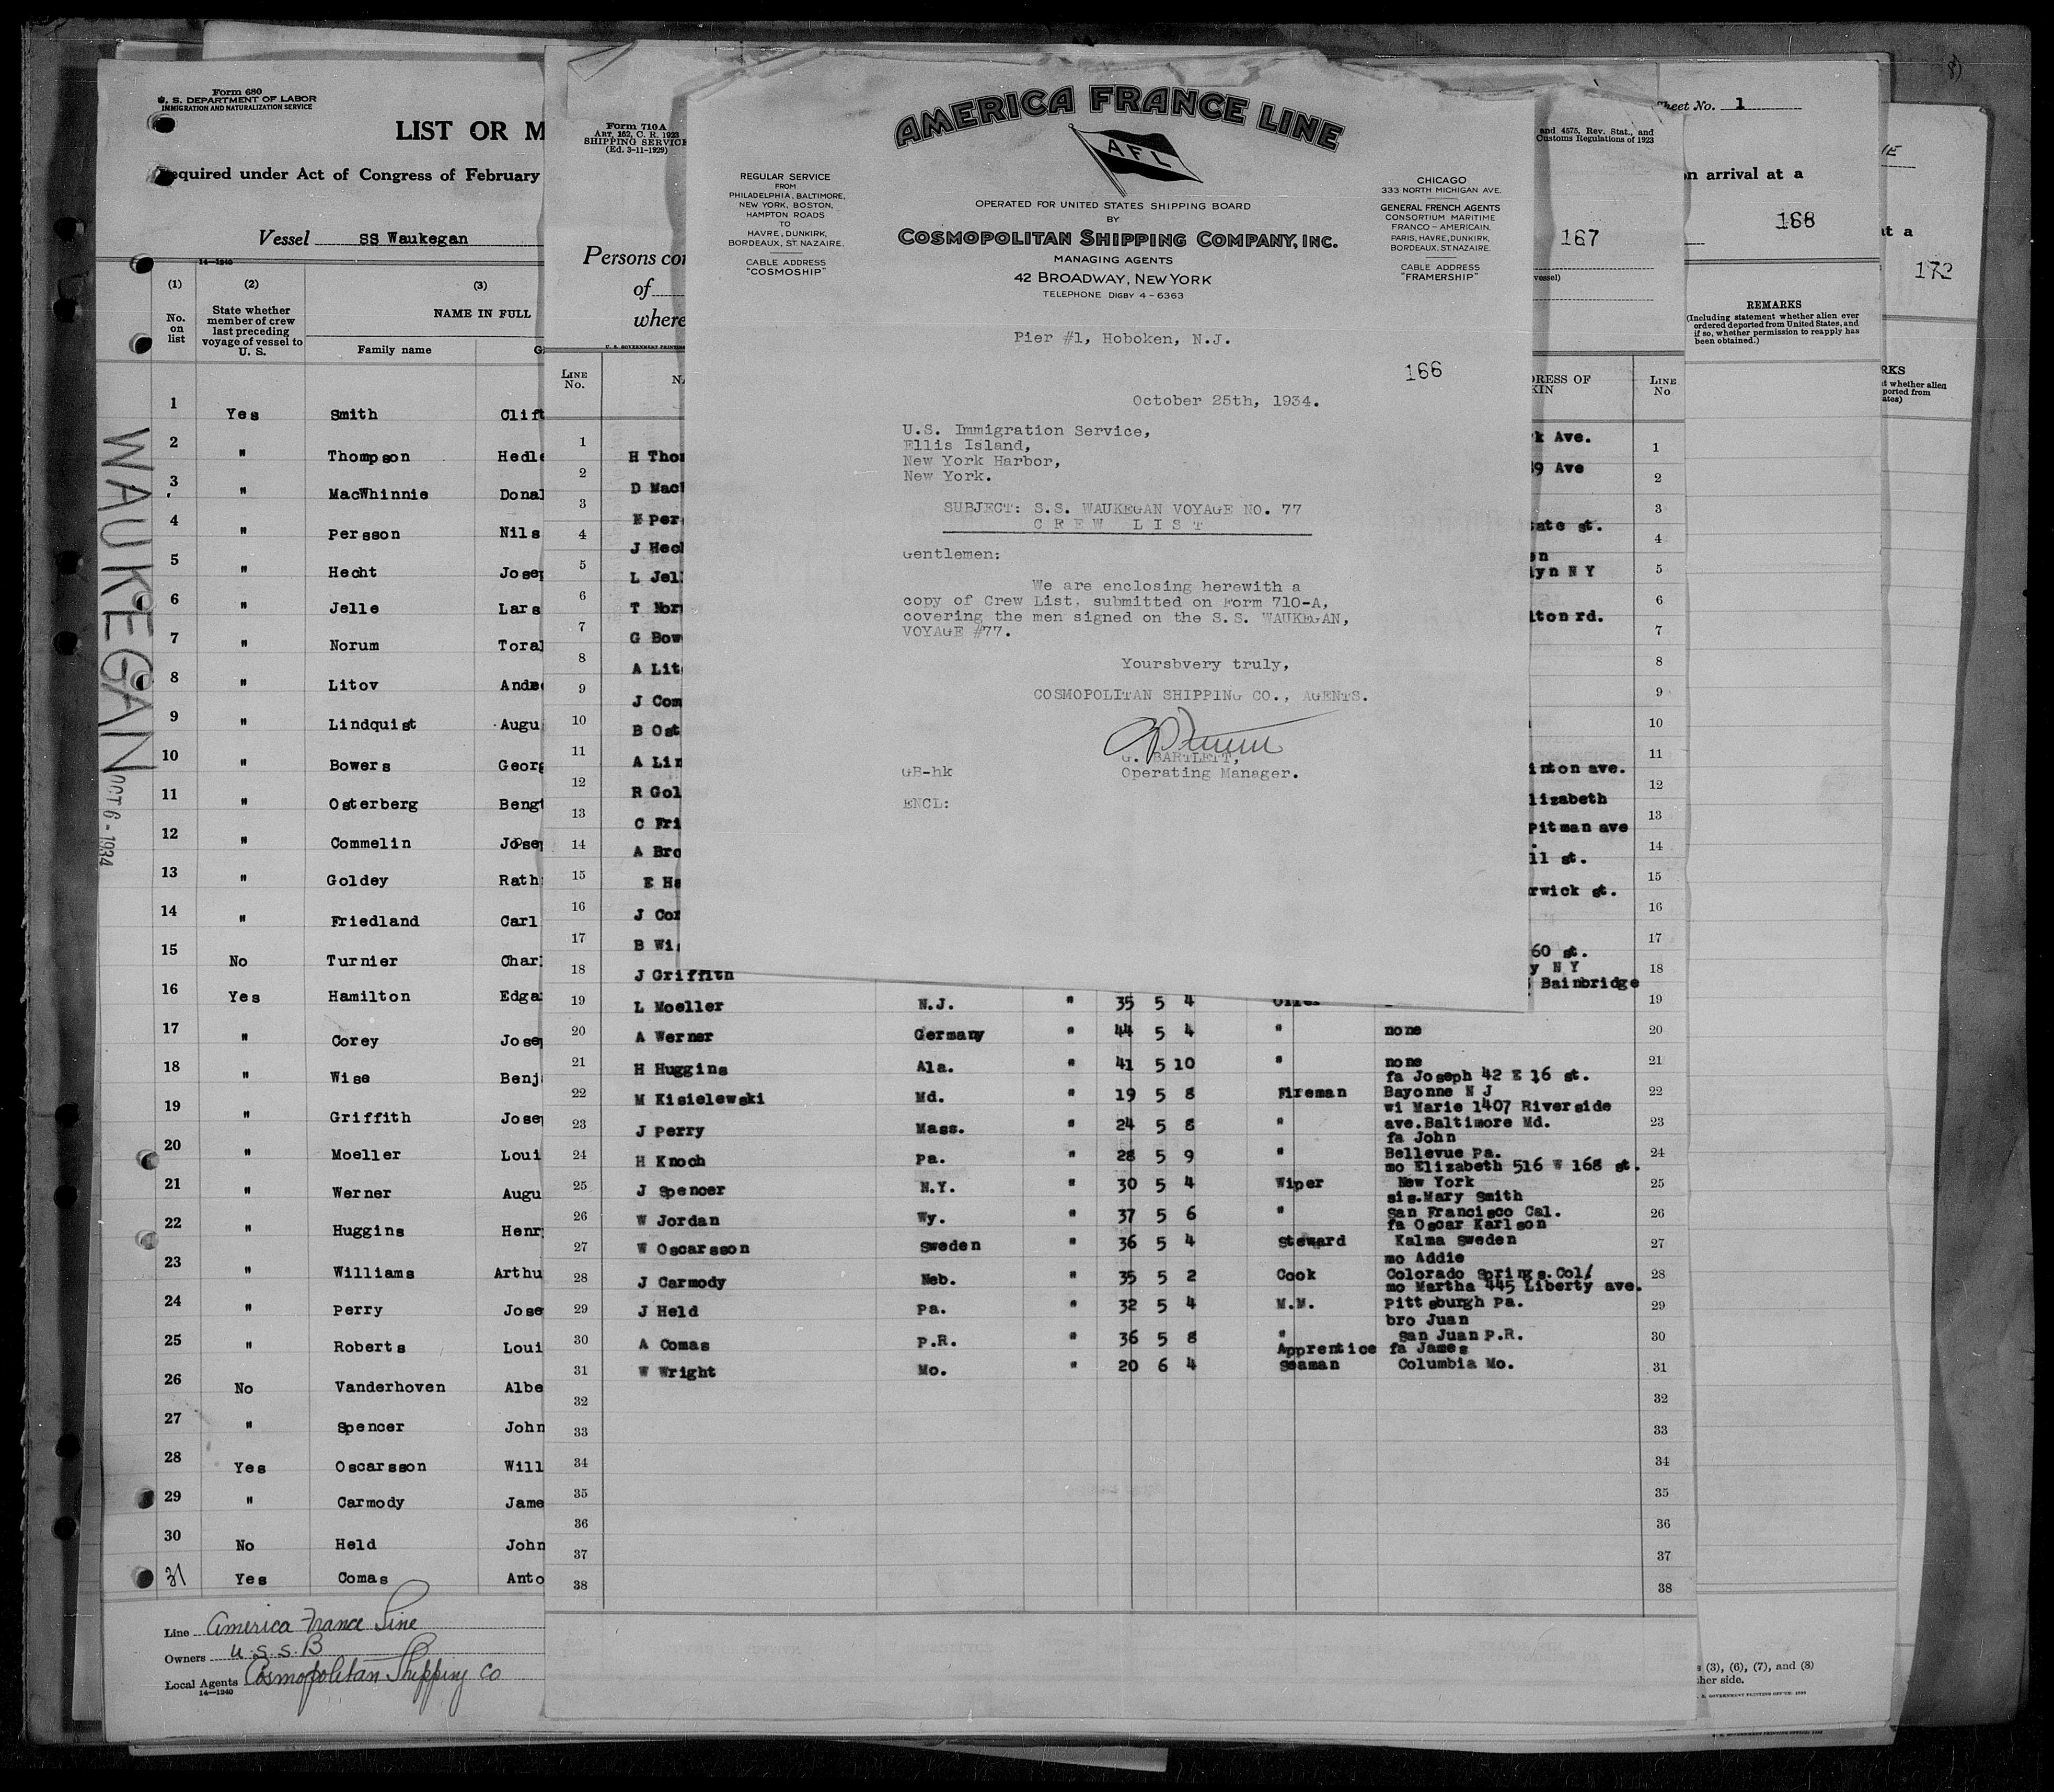 Form 680
U. S. DEPARTMENT OF LABOR
IMMIGRATION AND NATURALIZATION SERVICE
LIST OR M
equired under Act of Congress of February
Vessel SS Waukegan
14—1240
(1) (2) (3)
No. on list
State whether member of crew last preceding voyage of vessel to U. S.
NAME IN FULL
Family name G
1 Yes Smith Clift
2 " Thompson Hedle
3 " MacWhinnie Donal
4 " Persson Nils
5 " Hecht Josep
6 " Jelle Lars
7 " Norum Toral
8 " Litov Andre
9 " Lindquist Augu
10 " Bowers Georg
11 " Osterberg Bengt
12 " Commelin Josep
13 " Goldey Rath
14 " Friedland Carl
15 No Turnier Charl
16 Yes Hamilton Edga
17 " Corey Josep
18 " Wise Benj
19 " Griffith Josep
20 " Moeller Loui
21 " Werner Augu
22 " Huggins Henr
23 " Williams Arthu
24 " Perry Jose
25 " Roberts Loui
26 No Vanderhoven Albe
27 " Spencer John
28 Yes Oscarsson Will
29 " Carmody Jame
30 No Held John
31 Yes Comas Anto
Line America France Line
Owners U.S.S.B
Local Agents Cosmopolitan Shipping Co
14—1240
WAUKEGAN
OCT 6 - 1934
Form 710A
ART. 162, C. R. 1923
SHIPPING SERVICE
(Ed. 3-11-1929)
Persons co
of
where
U. S. GOVERNMENT PRINTING
LINE No.
NA
1 H Tho
2 D Mac
3 N Per
4 J Hec
5 L Jel
6 T Nor
7 G Bow
8 A Lit
9 J Com
10 B Ost
11 A Lin
12 R Gol
13 C Fri
14 A Bro
15 E Ha
16 J Cor
17 B Wi
18 J Griffith
19 L Moeller N.J. " 35 5 4 Oiler
20 A Werner Germany " 44 5 4 " none
21 H Huggins Ala. " 41 5 10 " none
fa Joseph 42 E 16 st.
22 M Kisielewski Md. " 19 5 8 Fireman Bayonne N J
wi Marie 1407 Riverside
23 J Perry Mass. " 24 5 8 " ave.Baltimore Md.
fa John
24 H Knoch Pa. " 28 5 9 " Bellevue Pa.
mo Elizabeth 516 W 168 st.
25 J Spencer N.Y. " 30 5 4 Wiper New York
sis.Mary Smith
26 W Jordan Wy. " 37 5 6 " San Francisco Cal.
fa Oscar Karlson
27 W Oscarsson Sweden " 36 5 4 Steward Kalma Sweden
mo Addie
28 J Carmody Neb. " 35 5 2 Cook Colorado Springs.Col/
mo Martha 445 Liberty ave.
29 J Held Pa. " 32 5 4 M.M. Pittsburgh Pa.
bro Juan
30 A Comas P.R. " 36 5 8 " San Juan P.R.
Apprentice fa James
31 W Wright Mo. " 20 6 4 Seaman Columbia Mo.
32
33
34
35
36
37
38
AMERICA FRANCE LINE
AFL
REGULAR SERVICE
FROM
PHILADELPHIA, BALTIMORE,
NEW YORK, BOSTON,
HAMPTON ROADS
TO
HAVRE, DUNKIRK,
BORDEAUX, ST. NAZAIRE.
CABLE ADDRESS
"COSMOSHIP"
OPERATED FOR UNITED STATES SHIPPING BOARD
BY
COSMOPOLITAN SHIPPING COMPANY, INC.
MANAGING AGENTS
42 BROADWAY, NEW YORK
TELEPHONE DIGBY 4-6363
CHICAGO
333 NORTH MICHIGAN AVE.
GENERAL FRENCH AGENTS
CONSORTIUM MARITIME
FRANCO-AMERICAIN.
PARIS, HAVRE, DUNKIRK,
BORDEAUX, ST. NAZAIRE.
CABLE ADDRESS
"FRAMERSHIP"
Pier #1, Hoboken, N.J.
166
October 25th, 1934.
U.S. Immigration Service,
Ellis Island,
New York Harbor,
New York.
SUBJECT: S.S. WAUKEGAN VOYAGE NO. 77
C R E W L I S T
Gentlemen:
We are enclosing herewith a
copy of Crew List, submitted on Form 710-A,
covering the men signed on the S.S. WAUKEGAN,
VOYAGE #77.
Yoursbvery truly,
COSMOPOLITAN SHIPPING CO., AGENTS.
G. BARTLETT,
GB-hk Operating Manager.
ENCL:
and 4575, Rev. Stat., and
Customs Regulations of 1923
167
vessel)
DRESS OF
KIN
LINE No
k Ave.
1
49 Ave
2
3
tate st.
4
en
lyn N Y
5
6
lton rd.
7
8
9
10
11
inton ave.
12
lizabeth
13
Pitman ave
14
ll st.
15
rwick st.
16
17
60 st.
y N Y
18
Bainbridge
19
20
21
22
23
24
25
26
27
28
29
30
31
32
33
34
35
36
37
38
Sheet No. 1
n arrival at a
168
REMARKS
(Including statement whether alien ever
ordered deported from United States, and
if so, whether permission to reapply has
been obtained.)
s (3), (6), (7), and (8)
ther side.
U. S. GOVERNMENT PRINTING OFFICE: 1933
t a
172
RKS
t whether alien
ported from
ates)